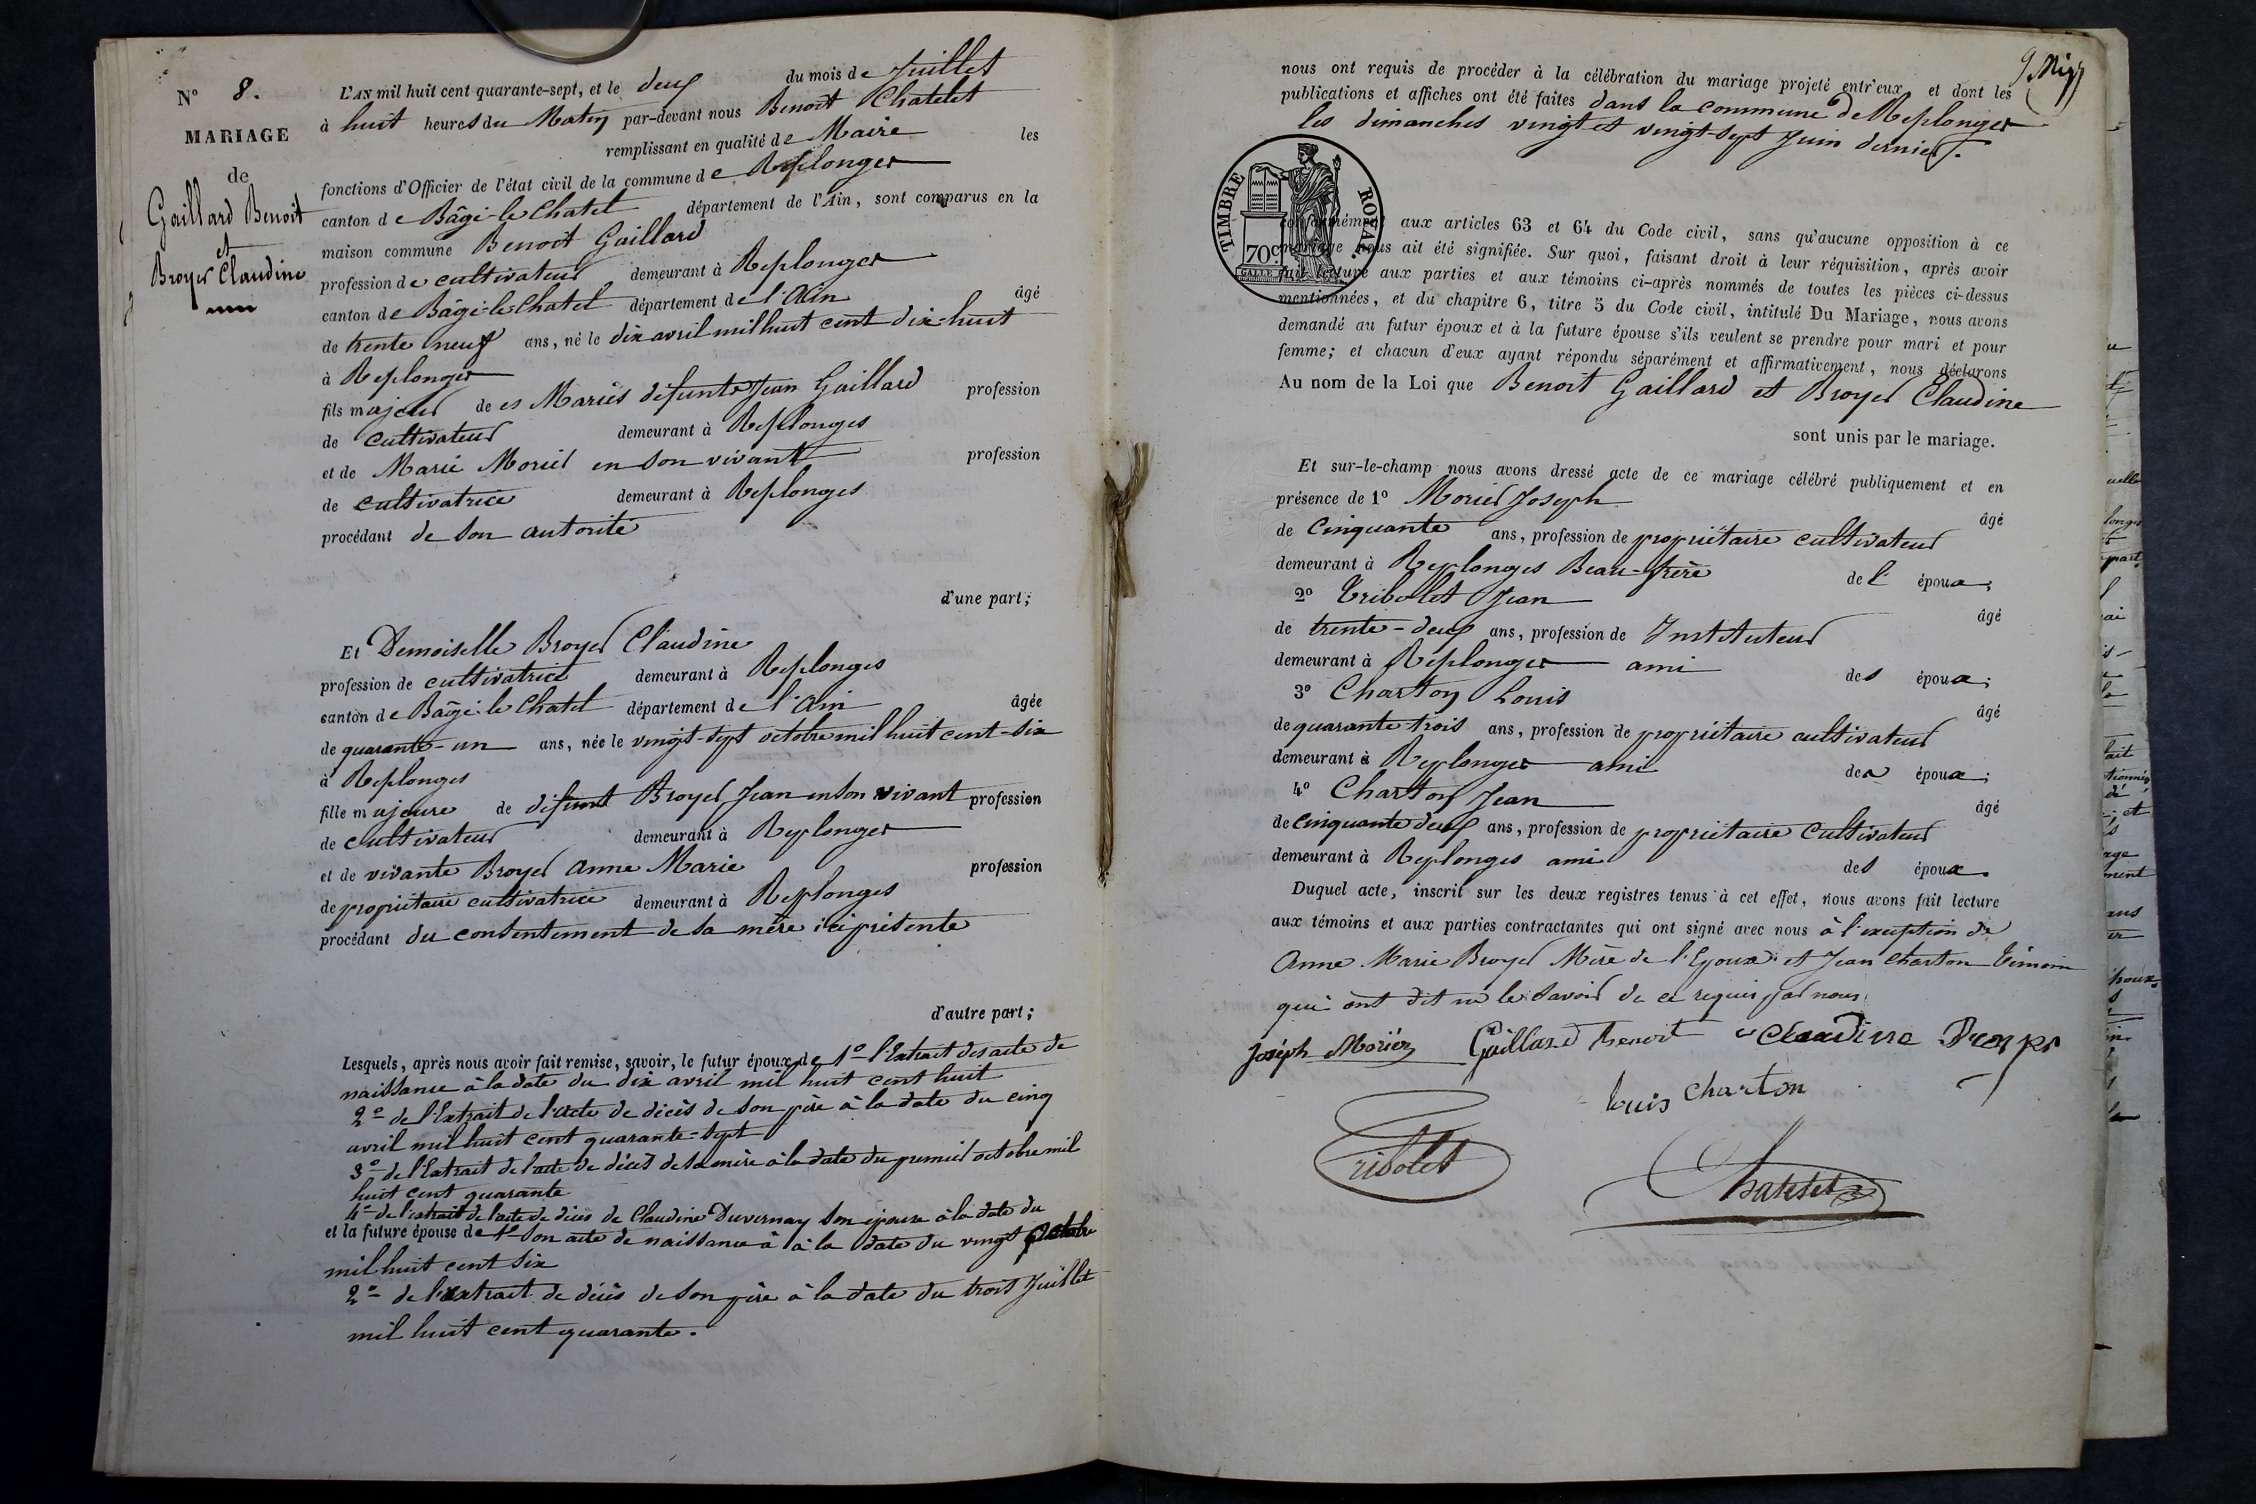 N° 8.
MARIAGE
de
Gaillard Benoit
et
Broyer Claudine
L'AN mil huit cent quarante-sept, et le deux du mois de Juillet
à huit heures du Matin par-devant nous Benoit Chatelet
remplissant en qualité de Maire les
fonctions d'Officier de l'état civil de la commune de Replonges
canton de Bâgé-le-Chatel département de l'Ain, sont comparus en la
maison commune Benoit Gaillard
profession de cultivateur demeurant à Replonges
canton de Bâgé-le-Chatel département de l'Ain âgé
de trente neuf ans, né le dix avril mil huit cent dix-huit
à Replonges
fils majeur de es Mariés défunts Jean Gaillard profession
de cultivateur demeurant à Replonges
et de Marie Morier en son vivant profession
de cultivatrice demeurant à Replonges
procédant de son autorité
d'une part;
Et Demoiselle Broyer Claudine
profession de cultivatrice demeurant à Replonges
canton de Bâgé-le-Chatel département de l'Ain âgée
de quarante-un ans, née le vingt-sept octobre mil huit cent-six
à Replonges
fille majeure de défunt Broyer Jean en son vivant profession
de cultivateur demeurant à Replonges
et de vivante Broyer Anne Marie profession
de propriétaire cultivatrice demeurant à Replonges
procédant du consentement de sa mère ici présente
d'autre part;
Lesquels, après nous avoir fait remise, savoir, le futur époux de 1° l'Extrait des acte de
naissance à la date du dix avril mil huit cent huit
2° de l'Extrait de l'acte de décès de son père à la date du cinq
avril mil huit cent quarante-sept
3° de l'Extrait de l'acte de décès de sa mère à la date du premier octobre mil
huit cent quarante
4° de l'extrait de l'acte de décès de Claudine Duvernay son épouse à la date du
et la future épouse de 1° son acte de naissance à à la date du vingt octobre
mil huit cent six
2° de l'extrait de décès de son père à la date du trois Juillet
mil huit cent quarante.
nous ont requis de procéder à la célébration du mariage projeté entr'eux et dont les
publications et affiches ont été faites dans la commune de Replonges
les dimanches vingt et vingt-sept Juin dernier.
TIMBRE ROYAL
70 c.
conformément aux articles 63 et 64 du Code civil, sans qu'aucune opposition à ce
mariage nous ait été signifiée. Sur quoi, faisant droit à leur réquisition, après avoir
fait lecture aux parties et aux témoins ci-après nommés de toutes les pièces ci-dessus
mentionnées, et du chapitre 6, titre 5 du Code civil, intitulé Du Mariage, nous avons
demandé au futur époux et à la future épouse s'ils veulent se prendre pour mari et pour
femme; et chacun d'eux ayant répondu séparément et affirmativement, nous déclarons
Au nom de la Loi que Benoit Gaillard et Broyer Claudine
sont unis par le mariage.
Et sur-le-champ nous avons dressé acte de ce mariage célébré publiquement et en
présence de 1° Morier Joseph
âgé
de Cinquante ans, profession de propriétaire cultivateur
demeurant à Replonges Beau-frère de l' époux;
2° Tribolet Jean
âgé
de trente-deux ans, profession de Instituteur
demeurant à Replonges ami des époux;
3° Charton Louis
âgé
de quarante-trois ans, profession de propriétaire cultivateur
demeurant à Replonges ami des époux;
4° Charton Jean
âgé
de cinquante deux ans, profession de propriétaire Cultivateur
demeurant à Replonges ami des époux.
Duquel acte, inscrit sur les deux registres tenus à cet effet, nous avons fait lecture
aux témoins et aux parties contractantes qui ont signé avec nous à l'exception de
Anne Marie Broyer Mère de l'Epouse et Jean Charton témoin
qui ont dit ne le savoir de ce requis par nous.
Joseph Morier Gaillard Benoit Claudine Broyer
Louis Charton
Tribolet
Chatelet